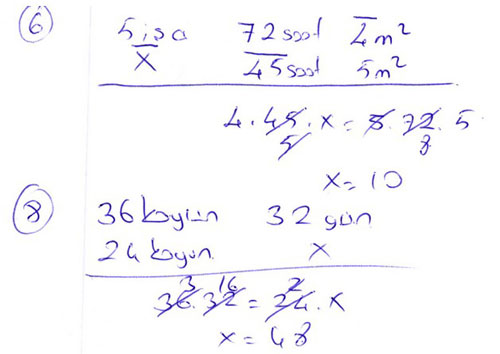 6 5 işçi 72 saat 4m²
X 45 saat 5m²
4.45.x = 5.72.5
5 8
x=10
8 36 koyun 32 gün
24 koyun x
3 16 2
36.32 = 24.x
x = 48